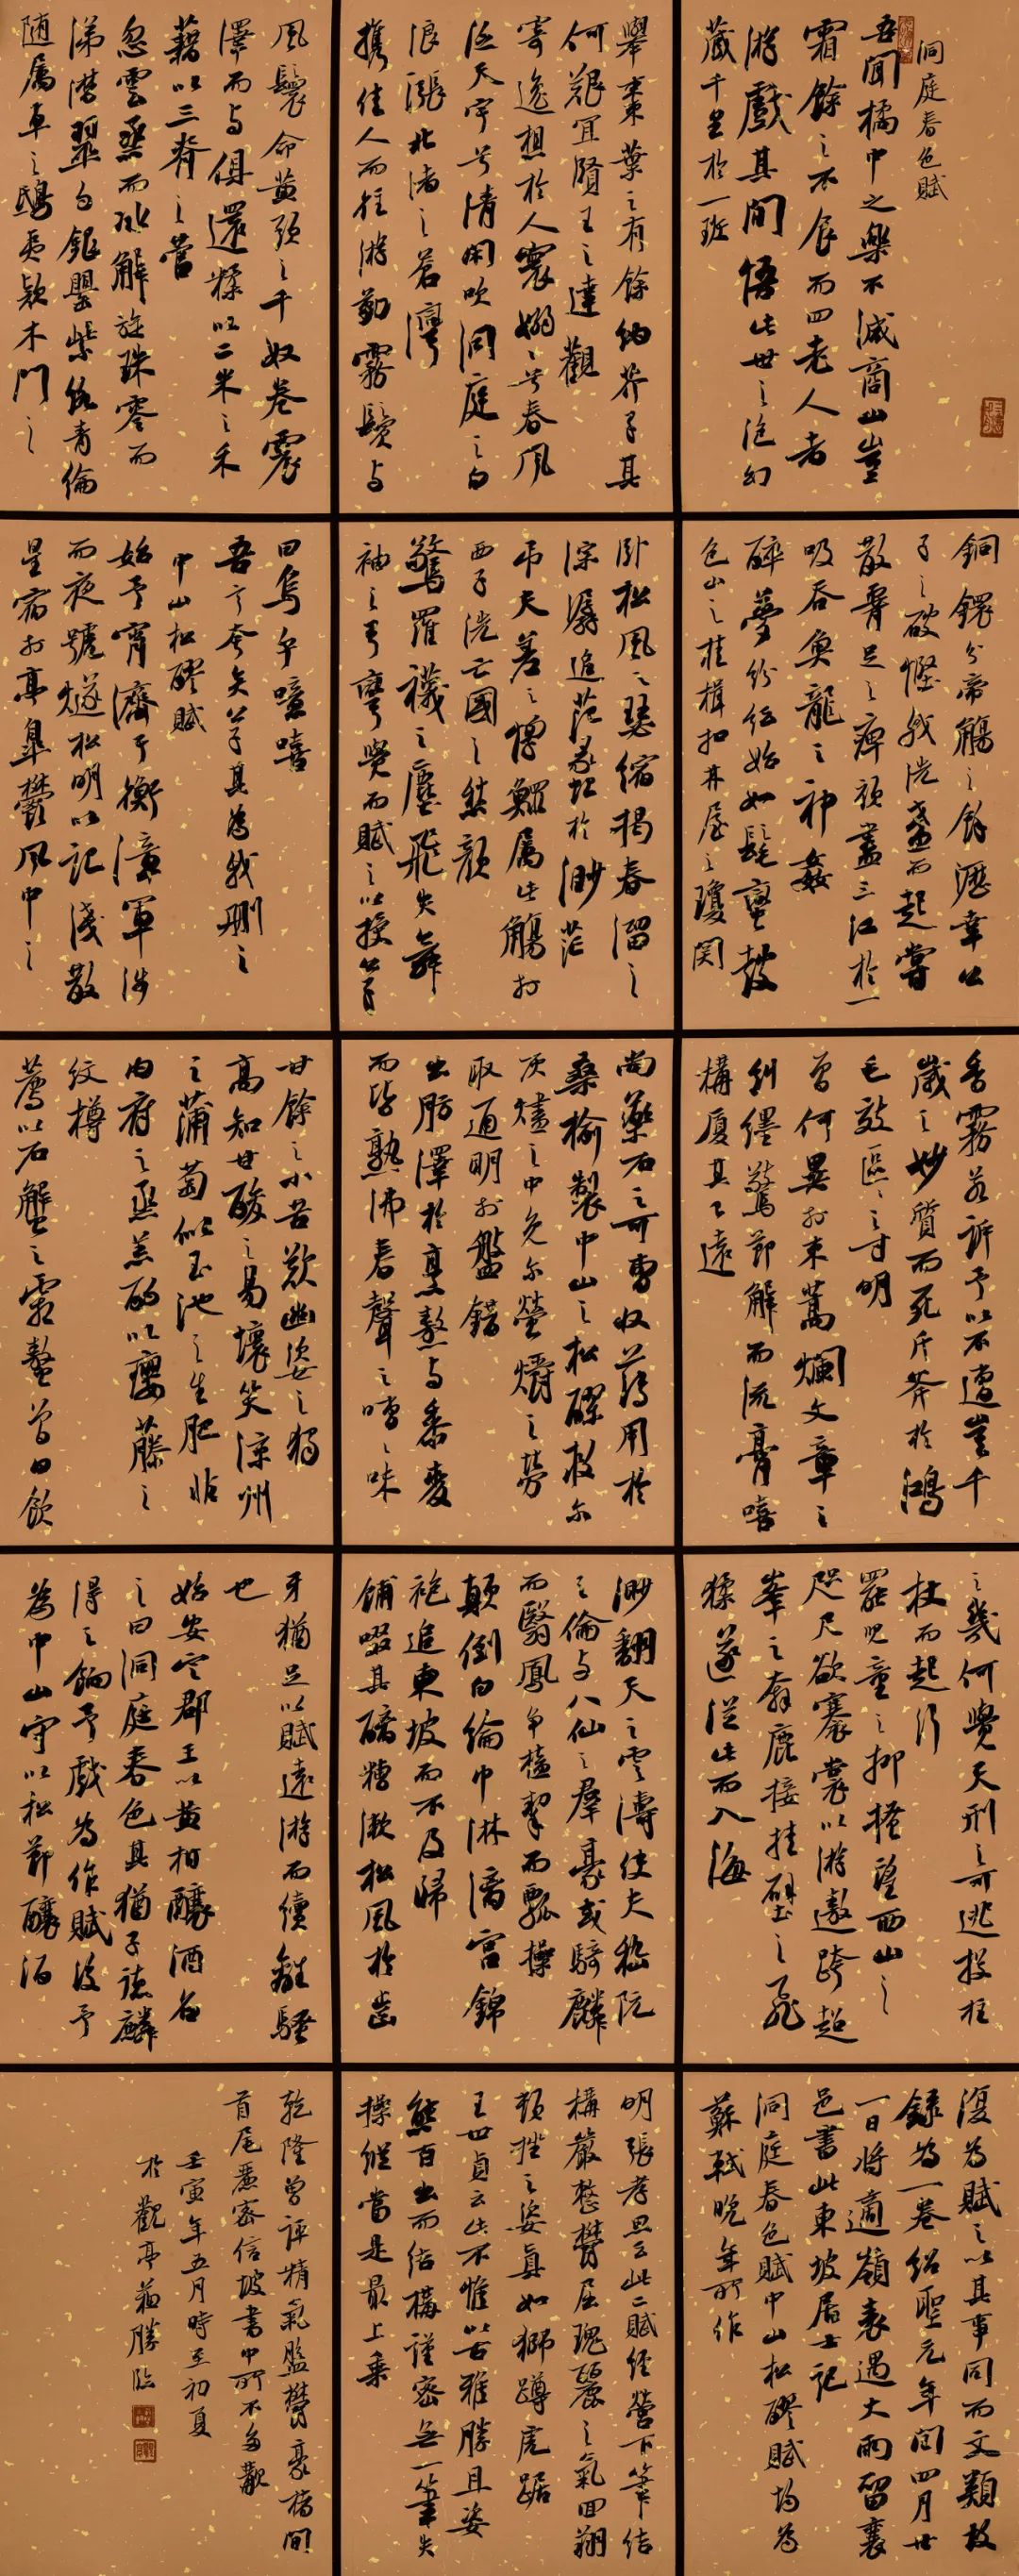 洞庭春色賦
吾聞橘中之樂不減商山豈
霜餘之不食而四老人者
游戲其間悟此世之泡幻
藏千里於一班
舉棗葉之有餘納芥子其
何艱宜賢王之達觀
寄逸想於人寰嫋〻兮春風
泛天宇兮清閑吹洞庭之白
浪漲北渚之蒼灣
攜佳人而往游勤霧鬢與
風鬟命黃頭之千奴卷震
澤而與俱還糅以二米之禾
藉以三脊之菅
忽雲蒸而冰解旋珠零而
涕潸翠勺銀罌紫絡青倫
隨屬車之鴟夷款木門之
銅鐶分帝觴之餘瀝幸公
子之破慳我洗盞而起嘗
散腰足之痺頑盡三江於一
吸吞魚龍之神姦
醉夢紛紜始如髦蠻鼓
包山之桂楫扣林屋之瓊関
臥松風之瑟縮揭春溜之
淙潺追范蠡於渺茫
吊夫差之惸鰥屬此觴於
西子洗亡國之愁顏
驚羅襪之塵飛失舞
袖之弓彎覺而賦之以授公子
曰烏乎噫嘻
吾言夸矣公子其為我刪之
中山松醪賦
始予宵濟于衡漳軍涉
而夜號燧松明以記淺散
星宿於亭皐鬱風中之
香霧若訴予以不遭豈千
歲之妙質而死斤斧於鴻
毛效區〻之寸明
曾何異於束蒿爛文章之
糾纆驚節解而流膏嘻
構廈其已遠
尚藥石之可曹收薄用於
桑榆製中山之松醪救尔
灰燼之中免尔螢爝之勞
取通明於盤錯
出肪澤於烹熬與黍麥
而皆熟沸舂聲之嘈〻味
甘餘之小苦歎幽姿之獨
高知甘酸之易壞笑涼州
之蒲萄似玉池之生肥非
內府之蒸羔酌以癭藤之
紋樽
薦以石蟹之霜螯曾日飲
之幾何覺天刑之可逃投拄
杖而起行
罷兒童之抑搔望西山之
咫尺欲褰裳以游遨跨超
峯之奔鹿接挂壁之飛
猱遂從此而入海
渺翻天之雲濤使夫嵇阮
之倫與八仙之羣豪或騎麟
而翳鳳爭榼挈而瓢操
顛倒白綸巾淋漓宮錦
袍追東坡而不及歸
餔歠其醨糟漱松風於齒
牙猶足以賦遠游而續離騷
也
始安定郡王以黃柑釀酒名
之曰洞庭春色其猶子德麟
得之餉予戲為作賦後予
為中山守以松節釀酒
復為賦之以其事同而文類故
錄為一卷紹聖元年閏四月廿
一日將適嶺表遇大雨留襄
邑書此東坡居士記
洞庭春色賦中山松醪賦均為
蘇軾晚年所作
明張孝思云此二賦經營下筆結
構嚴整鬱屈瑰麗之氣回翔
頓挫之姿真如獅蹲虎踞
王世貞云此不惟以古雅勝且姿
態百出而結構謹密無一筆失
操縱當是最上乘
乾隆曾評精氣盤鬱豪楮間
首尾麗富信坡書中所不多覯
壬寅年五月時至初夏
於觀亭 勝臨